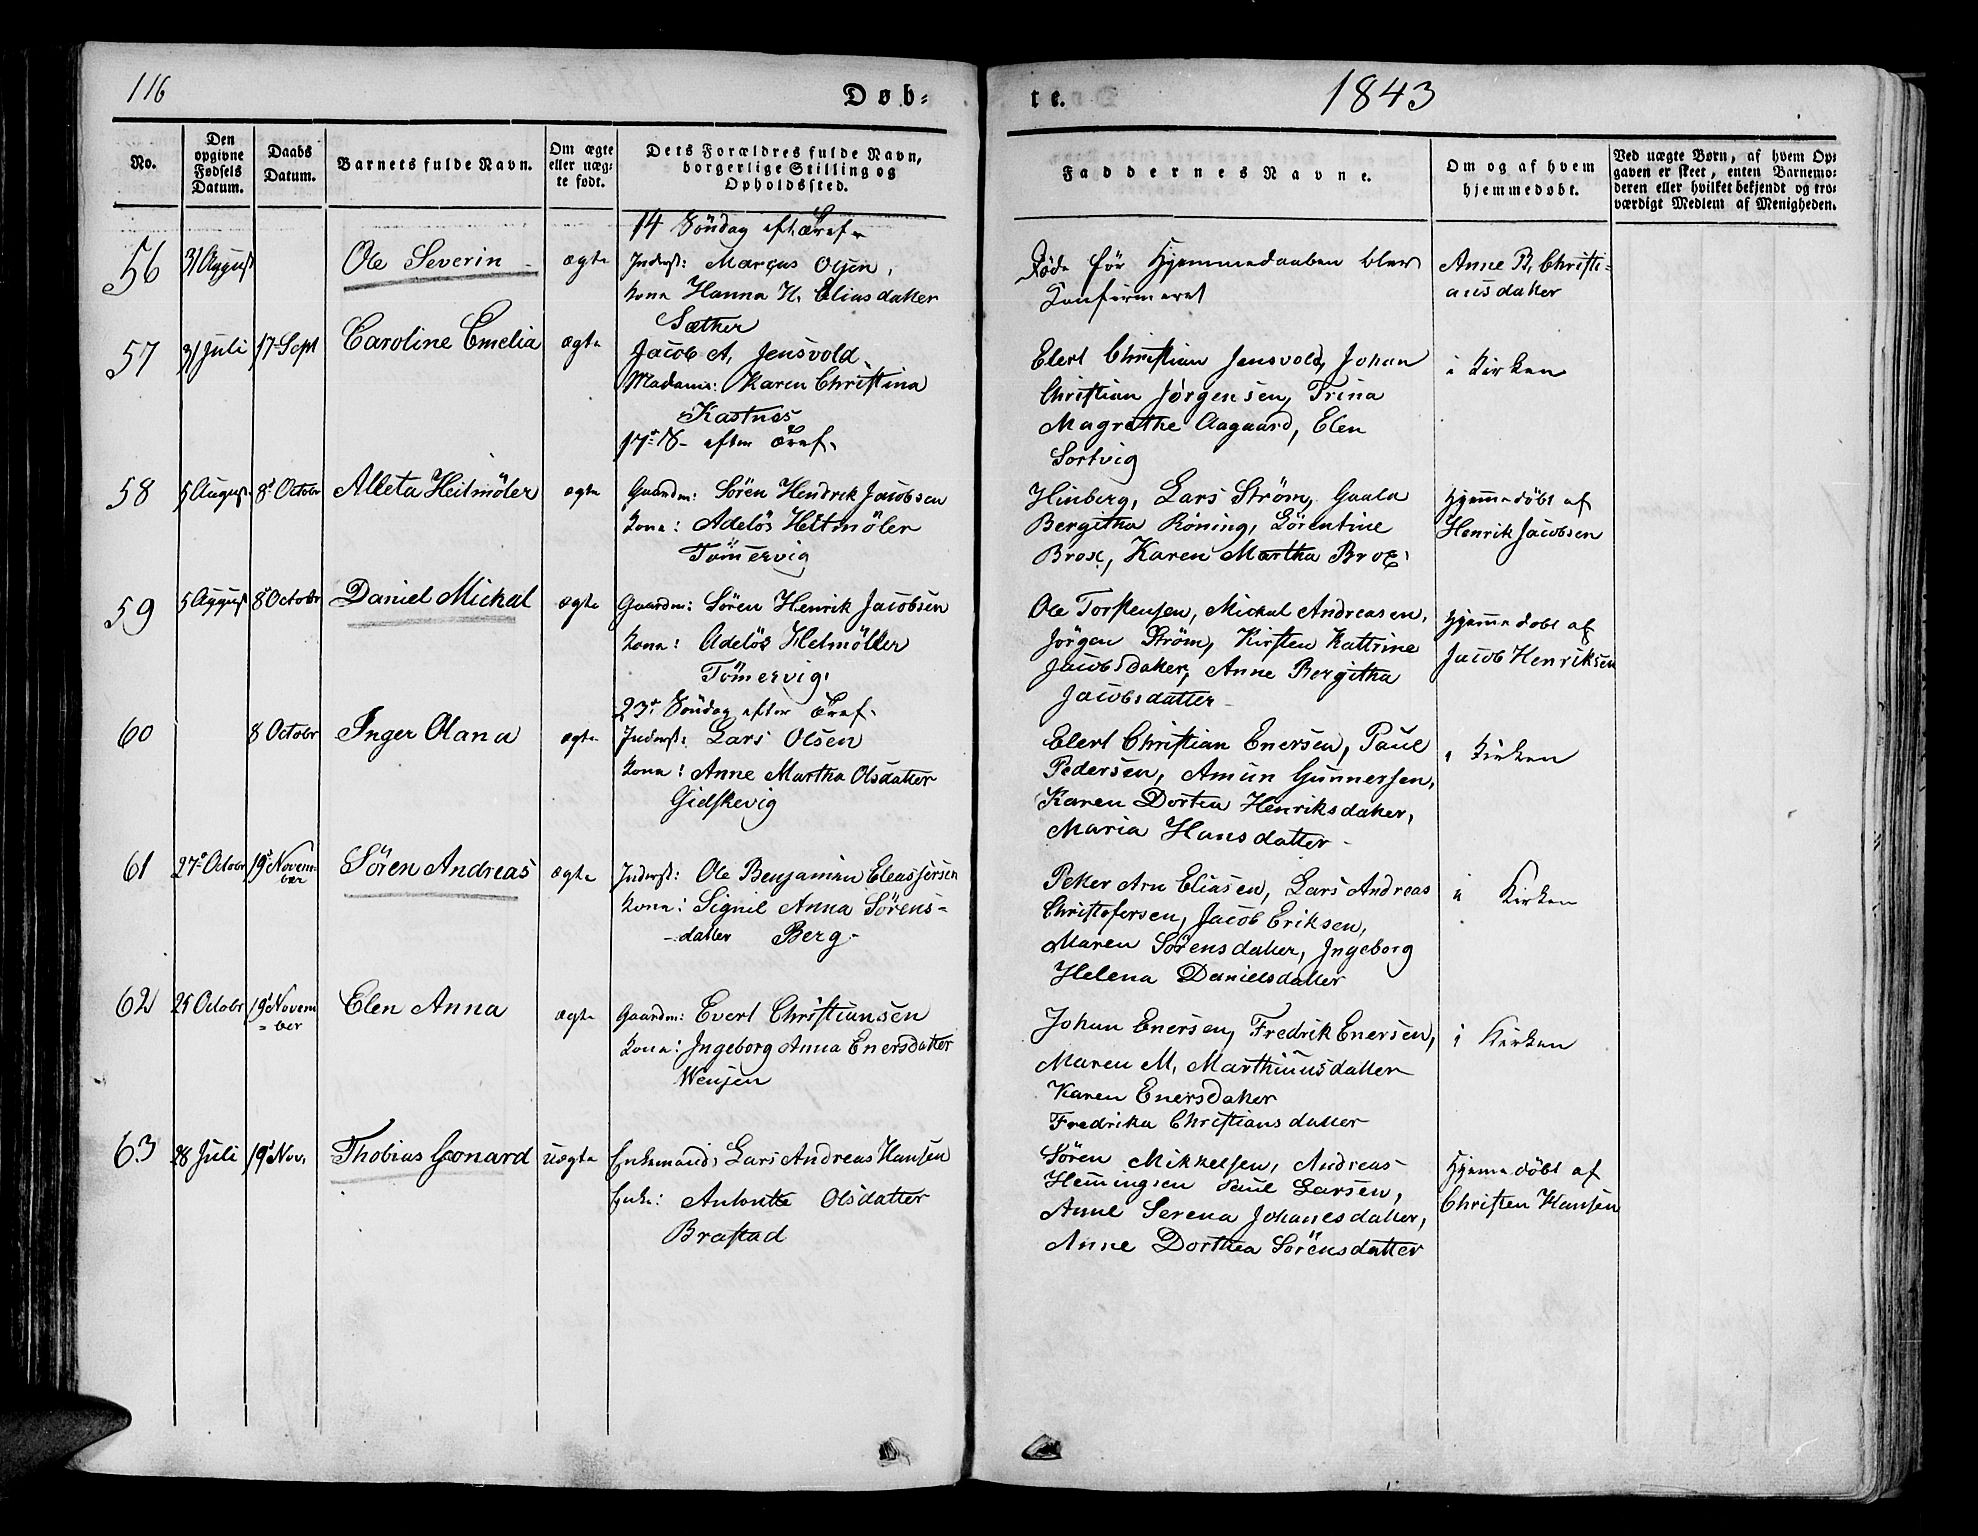 116
Døb-
te.
1843
No.
Den opgivne Fødsels Datum.
Daabs Datum.
Barnets fulde Navn.
Om ægte eller uægte født.
Dets Forældres fulde Navn, borgerlige Stilling og Opholdssted.
Faddernes Navne.
Om og af hvem hjemmedøbt.
Ved uægte Børn, af hvem Opgaven er skeet, enten Barnemoderen eller hvilket bekjendt og troværdigt Medlem af Menigheden.
14 Söndag eft Tref.
56 31 August Ole Severin ægte Inderst: Marcus Olsen,
Kona Hanna H. Eliasdatter
Sæther
Døde før Hjemmedaaben blev
Konfirmeret
Anne B. Christi-
ansdatter
57 31 Juli 17 Sept Caroline Emelia ægte Jacob A. Jensvold
Madame: Karen Christina
Kastnes
Elert Christian Jensvold, Johan
Christian Jørgensen, Trina
Magrethe Aagaard, Elen
Sortvig
i Kirken
17de S- efter Tref.
58 5 August 8de Octobr Alleta Heitmöler ægte Gaardm: Sören Hendrik Jacobsen
Kona: Adelös Heitmöler
Tömervig
Hinberg, Lars Strøm, Gaala
Bergitha Röning, Sörentine
Brox, Karen Martha Brox
Hjemmedöbt af
Henrik Jacobsen
59 5 August 8de Octobr Daniel Mickal ægte Gaardm: Sören Henrik Jacobsen
Kona: Adelös Hetmöller
Tömervig
Ole Torstensen, Mickal Andreasen,
Jörgen Strøm, Kirsten Kattrine
Jacobsdatter, Anne Bergitha
Jacobsdatter
Hjemmedöbt af
Jacob Henriksen
23de Söndag efter Tref.
60 8 Octobr Inger Olana ægte Inderst: Lars Olsen
Kona: Anne Martha Olsdatter
Gidskevig
Elert Christian Enersen, Paul
Pedersen, Amun Gunnersen,
Karen Dortea Henriksdatter,
Maria Hansdatter
i Kirken
61 27de Octobr 19de Novem-
ber Sören Andreas ægte Inderst: Ole Benjamin Eleassersen
Kona: Signel Anna Sörens-
datter Berg
Peter Arn Eliasen, Lars Andreas
Christofersen, Jacob Eriksen,
Maren Sörensdatter, Ingeborg
Helena Danielsdatter
i Kirken
62 25 Octobr 19de Novem-
ber Elen Anna ægte Gaardm: Evert Christiansen
Kona: Ingeborg Anna Enersdatter
Wensjen
Johan Enersen, Fredrik Enersen,
Maren M. Marthinusdatter
Karen Enersdatter
Fredrika Christiansdatter
i Kirken
63 28 Juli 19de Nov. Thobias Leonard uægte Enkemand: Lars Andreas Hansen
Enke: Antonette Olsdatter
Brastad
Sören Mikkelsen, Andreas
Hemingsen Paul Larsen,
Anne Serena Johanesdatter,
Anne Dorthea Sörensdatter
Hjemmedöbt af
Christen Hansen